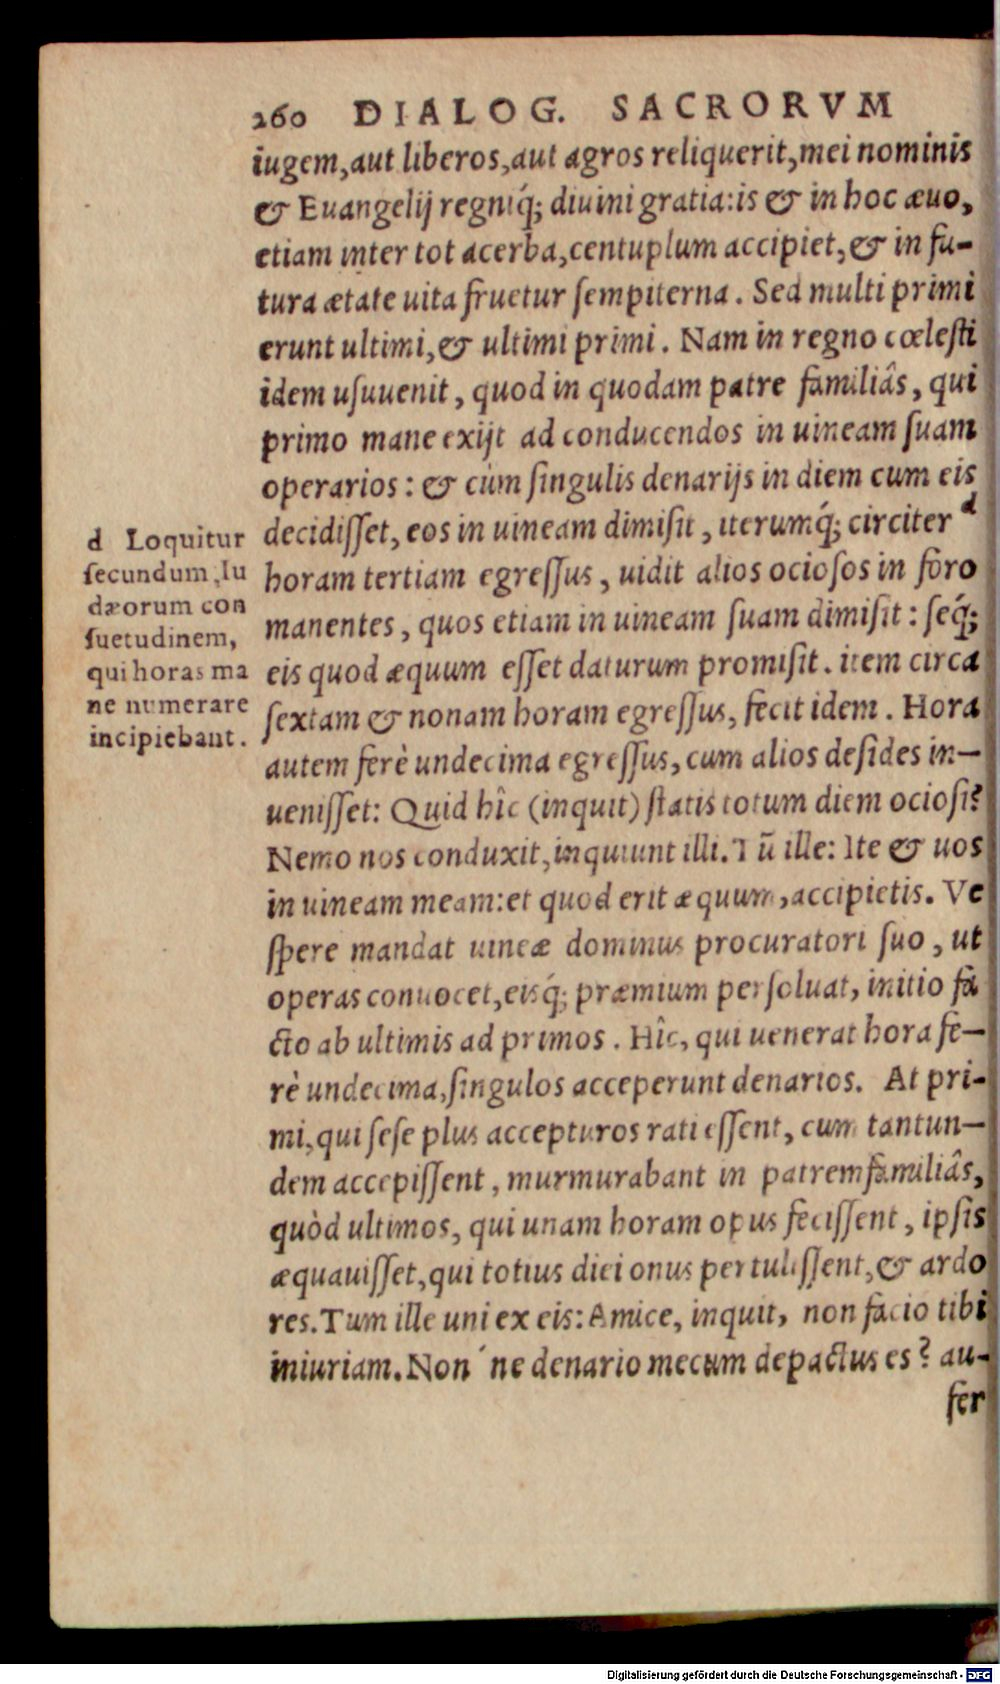 260 DIALOG. SACRORVM
iugem, aut liberos, aut agros reliquerit, mei nominis
& Euangelij regniq́; diuini gratia: is & in hoc æuo,
etiam inter tot acerba, centuplum accipiet, & in fu-
tura ætate uita fruetur sempiterna. Sed multi primi
erunt ultimi, & ultimi primi. Nam in regno cœlesti
idem usuuenit, quod in quodam patre familiâs, qui
primo mane exijt ad conducendos in uineam suam
operarios: & cùm singulis denarijs in diem cum eis
decidisset, eos in uineam dimisit, iterumq́; circiter d
horam tertiam egressus, uidit alios ociosos in foro
manentes, quos etiam in uineam suam dimisit: seq́;
eis quod æquum esset daturum promisit. item circa
sextam & nonam horam egressus, fecit idem. Hora
autem ferè undecima egressus, cum alios desides in-
uenisset: Quid hîc (inquit) statis totum diem ociosi?
Nemo nos conduxit, inquiunt illi. Tũ ille: Ite & uos
in uineam meam: et quod erit æquum, accipietis. Ve
spere mandat uineæ dominus procuratori suo, ut
operas conuocet, eisq́; præmium persoluat, initio fa
cto ab ultimis ad primos. Hîc, qui uenerat hora fe-
rè undecima, singulos acceperunt denarios. At pri-
mi, qui sese plus accepturos rati essent, cum tantun-
dem accepissent, murmurabant in patremfamiliâs,
quòd ultimos, qui unam horam opus fecissent, ipsis
æquauisset, qui totius diei onus pertulissent, & ardo
res. Tum ille uni ex eis: Amice, inquit, non facio tibi
iniuriam. Non´ne denario mecum depactus es? au-
fer
d Loquitur
secundum Iu
dæorum con
suetudinem,
qui horas ma
ne numerare
incipiebant.
Digitalisierung gefördert durch die Deutsche Forschungsgemeinschaft - DFG